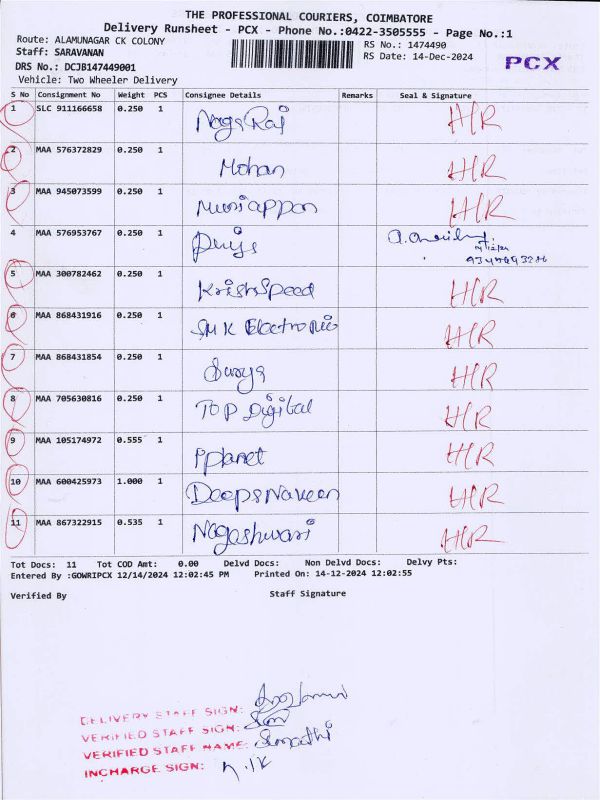 THE PROFESSIONAL COURIERS, COIMBATORE
Delivery Runsheet - PCX - Phone No.:0422-3505555 - Page No.:1
Route: ALAMUNAGAR CK COLONY
RS No.: 1474490
Staff: SARAVANAN
RS Date: 14-Dec-2024
PCX
DRS No.: DCJB147449001
Vehicle: Two Wheeler Delivery
S No Consignment No Weight PCS Consignee Details Remarks Seal & Signature
1 SLC 911166658 0.250 1 NagaRaj H/R
2 MAA 576372829 0.250 1 Mohan H/R
3 MAA 945073599 0.250 1 Muniappan H/R
4 MAA 576953767 0.250 1
5 MAA 300782462 0.250 1 KrishSpeed H/R
6 MAA 868431916 0.250 1 SMK Electronic H/R
7 MAA 868431854 0.250 1 Surya H/R
8 MAA 705630816 0.250 1 TOP Digital H/R
9 MAA 105174972 0.555 1 iplanet H/R
10 MAA 600425973 1.000 1 DeepsNaveen H/R
11 MAA 867322915 0.535 1 Nagashwari H/R
Tot Docs: 11 Tot COD Amt: 0.00 Delvd Docs: Non Delvd Docs: Delvy Pts:
Entered By :GOWRIPCX 12/14/2024 12:02:45 PM Printed On: 14-12-2024 12:02:55
Verified By Staff Signature
DELIVERY STAFF SIGN:
VERIFIED STAFF SIGN:
VERIFIED STAFF NAME: Sumathi
INCHARGE SIGN: